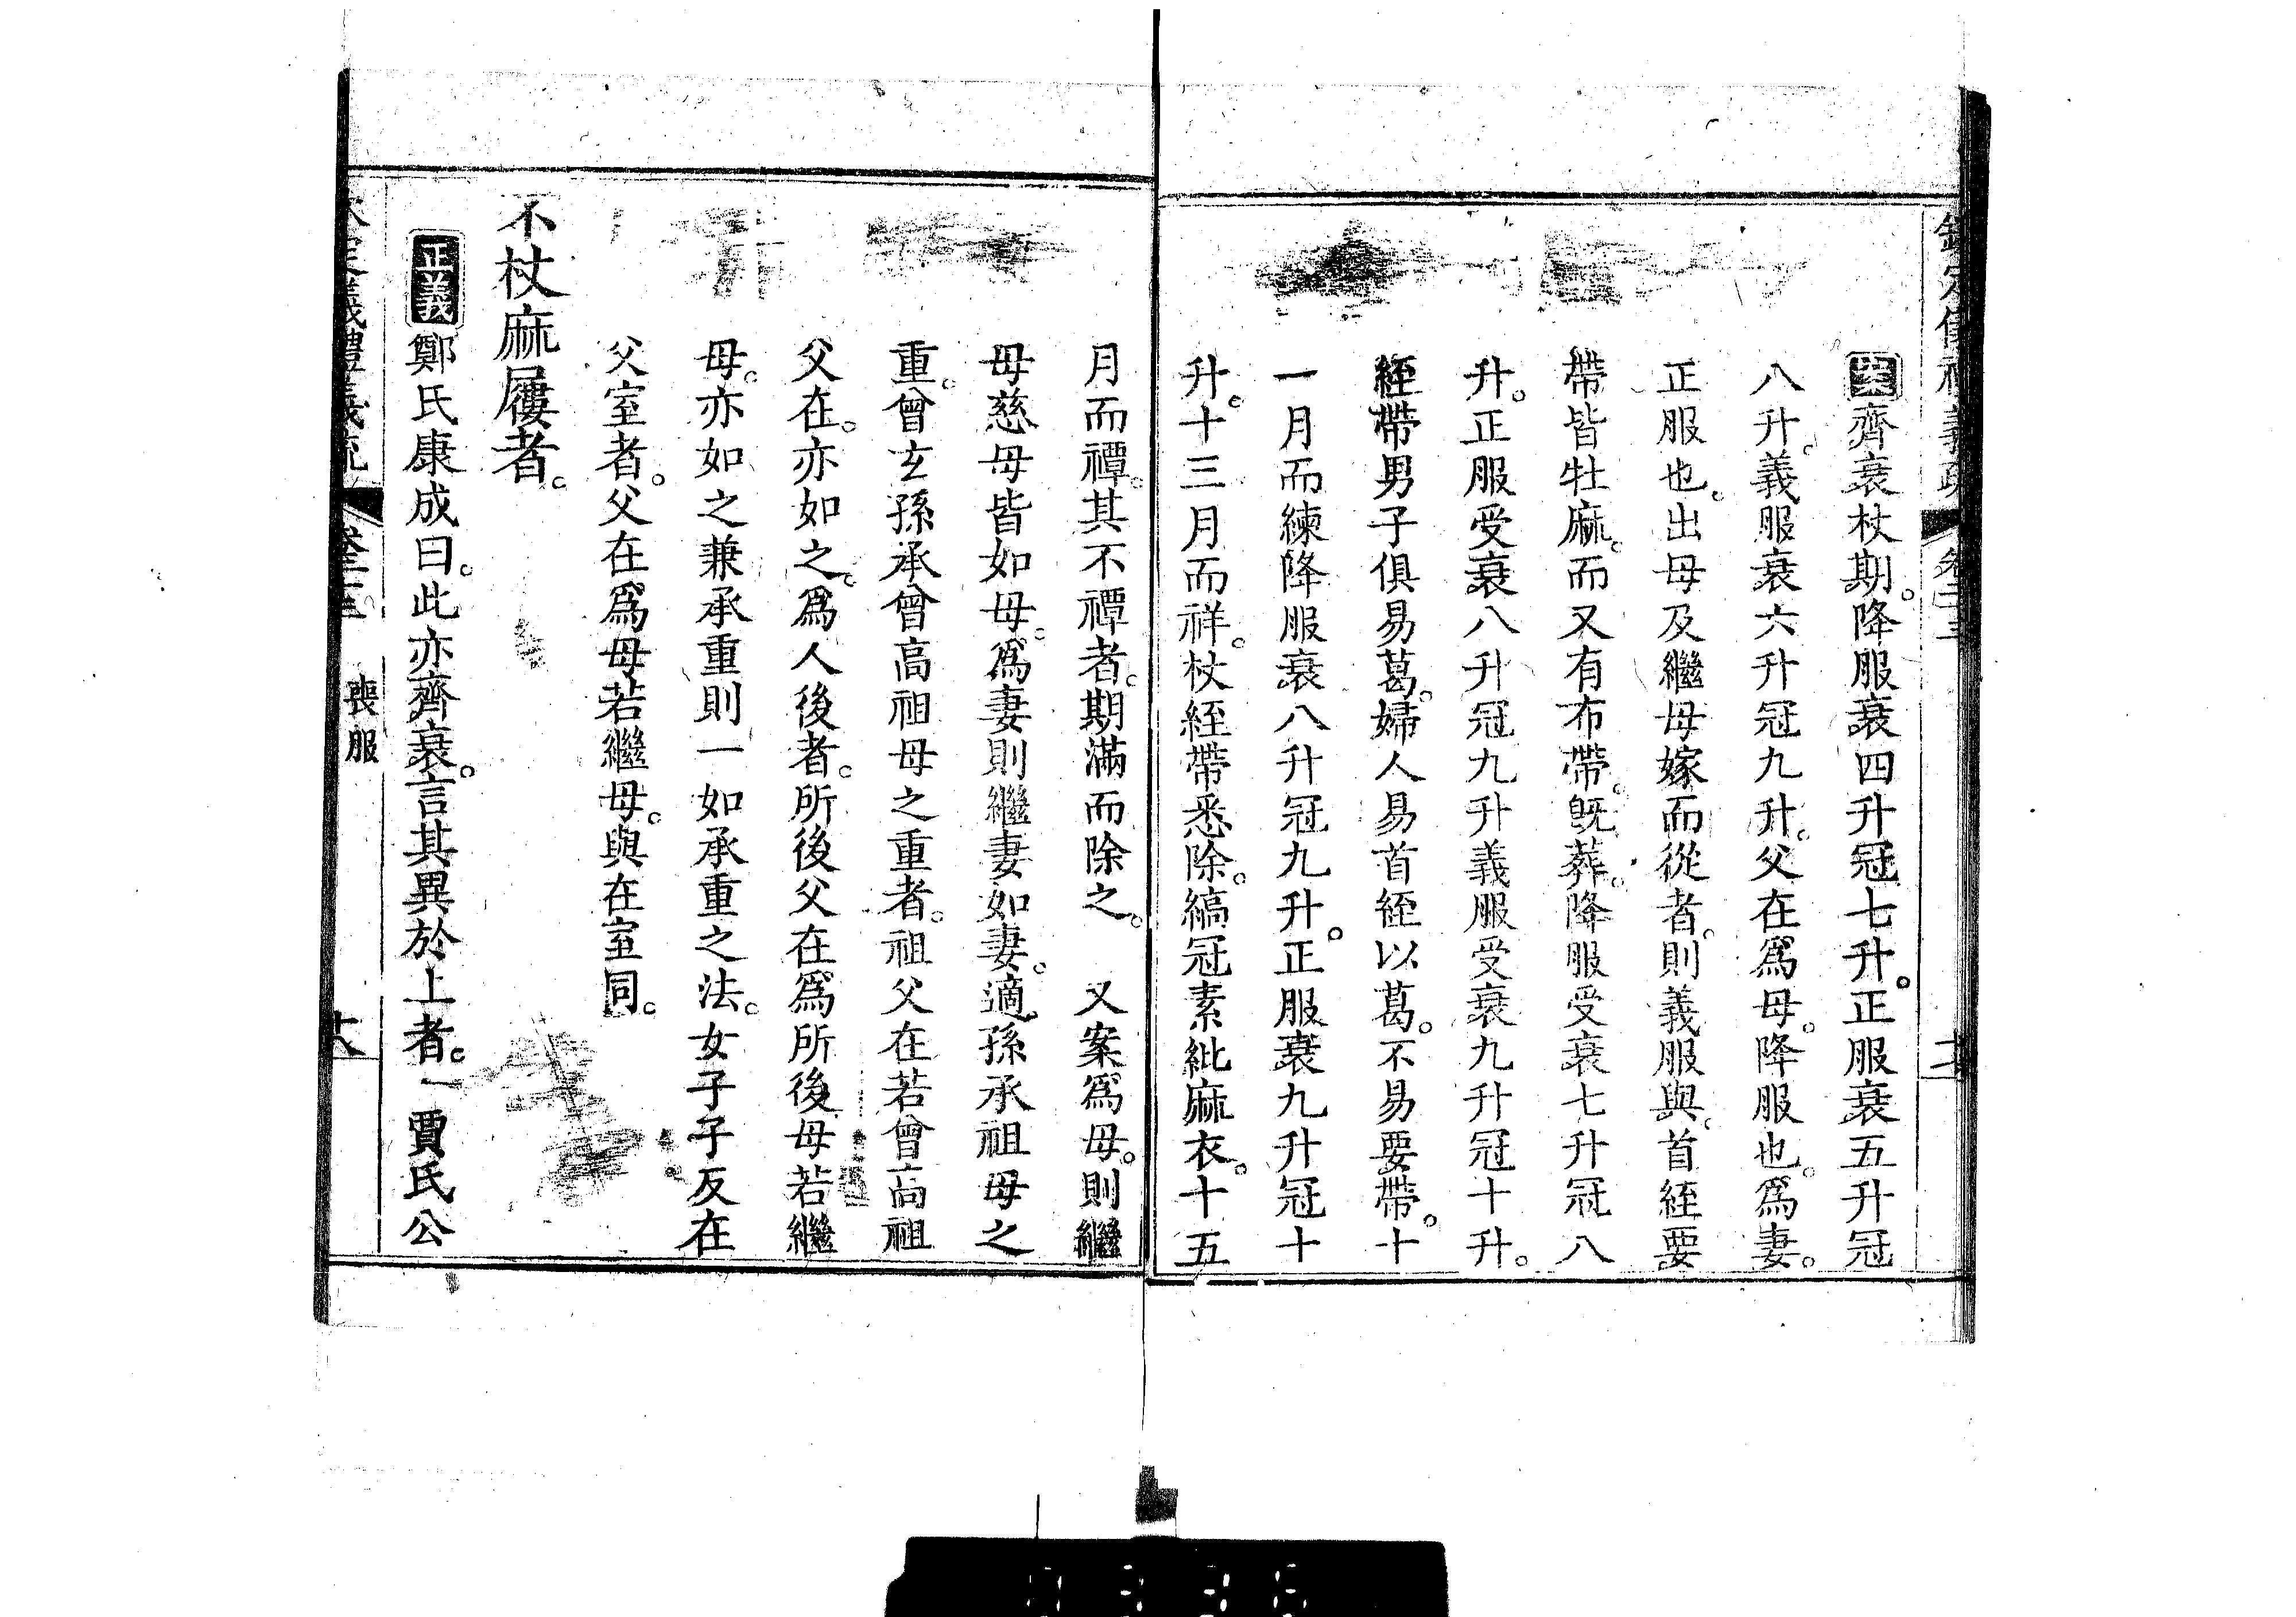 欽定儀禮義疏 卷二十三
齊衰杖期。降服衰四升冠七升。正服衰五升冠
八升。義服衰六升冠九升。父在爲母。降服也。爲妻。
正服也。出母及繼母嫁而從者。則義服與。首絰要
帶皆牡麻。而又有布帶。旣葬。降服受衰七升冠八
升。正服受衰八升冠九升義服受衰九升冠十升。
絰帶男子俱易葛。婦人易首絰以葛。不易要帶。十
一月而練降服衰八升冠九升。正服衰九升冠十
升。十三月而祥。杖絰帶悉除。縞冠素紕麻衣。十五
月而禫。其不禫者。期滿而除之。 又案爲母。則繼
母慈母皆如母。爲妻則繼妻如妻。適孫承祖母之
重。曾玄孫承曾高祖母之重者。祖父在若曾高祖
父在。亦如之。爲人後者。所後父在爲所後母若繼
母。亦如之兼承重則一如承重之法。女子子反在
父室者。父在爲母若繼母。與在室同。
不杖麻屨者。
正義 鄭氏康成曰。此亦齊衰。言其異於上者。 賈氏公
欽定儀禮義疏 卷二十三 喪服 十八